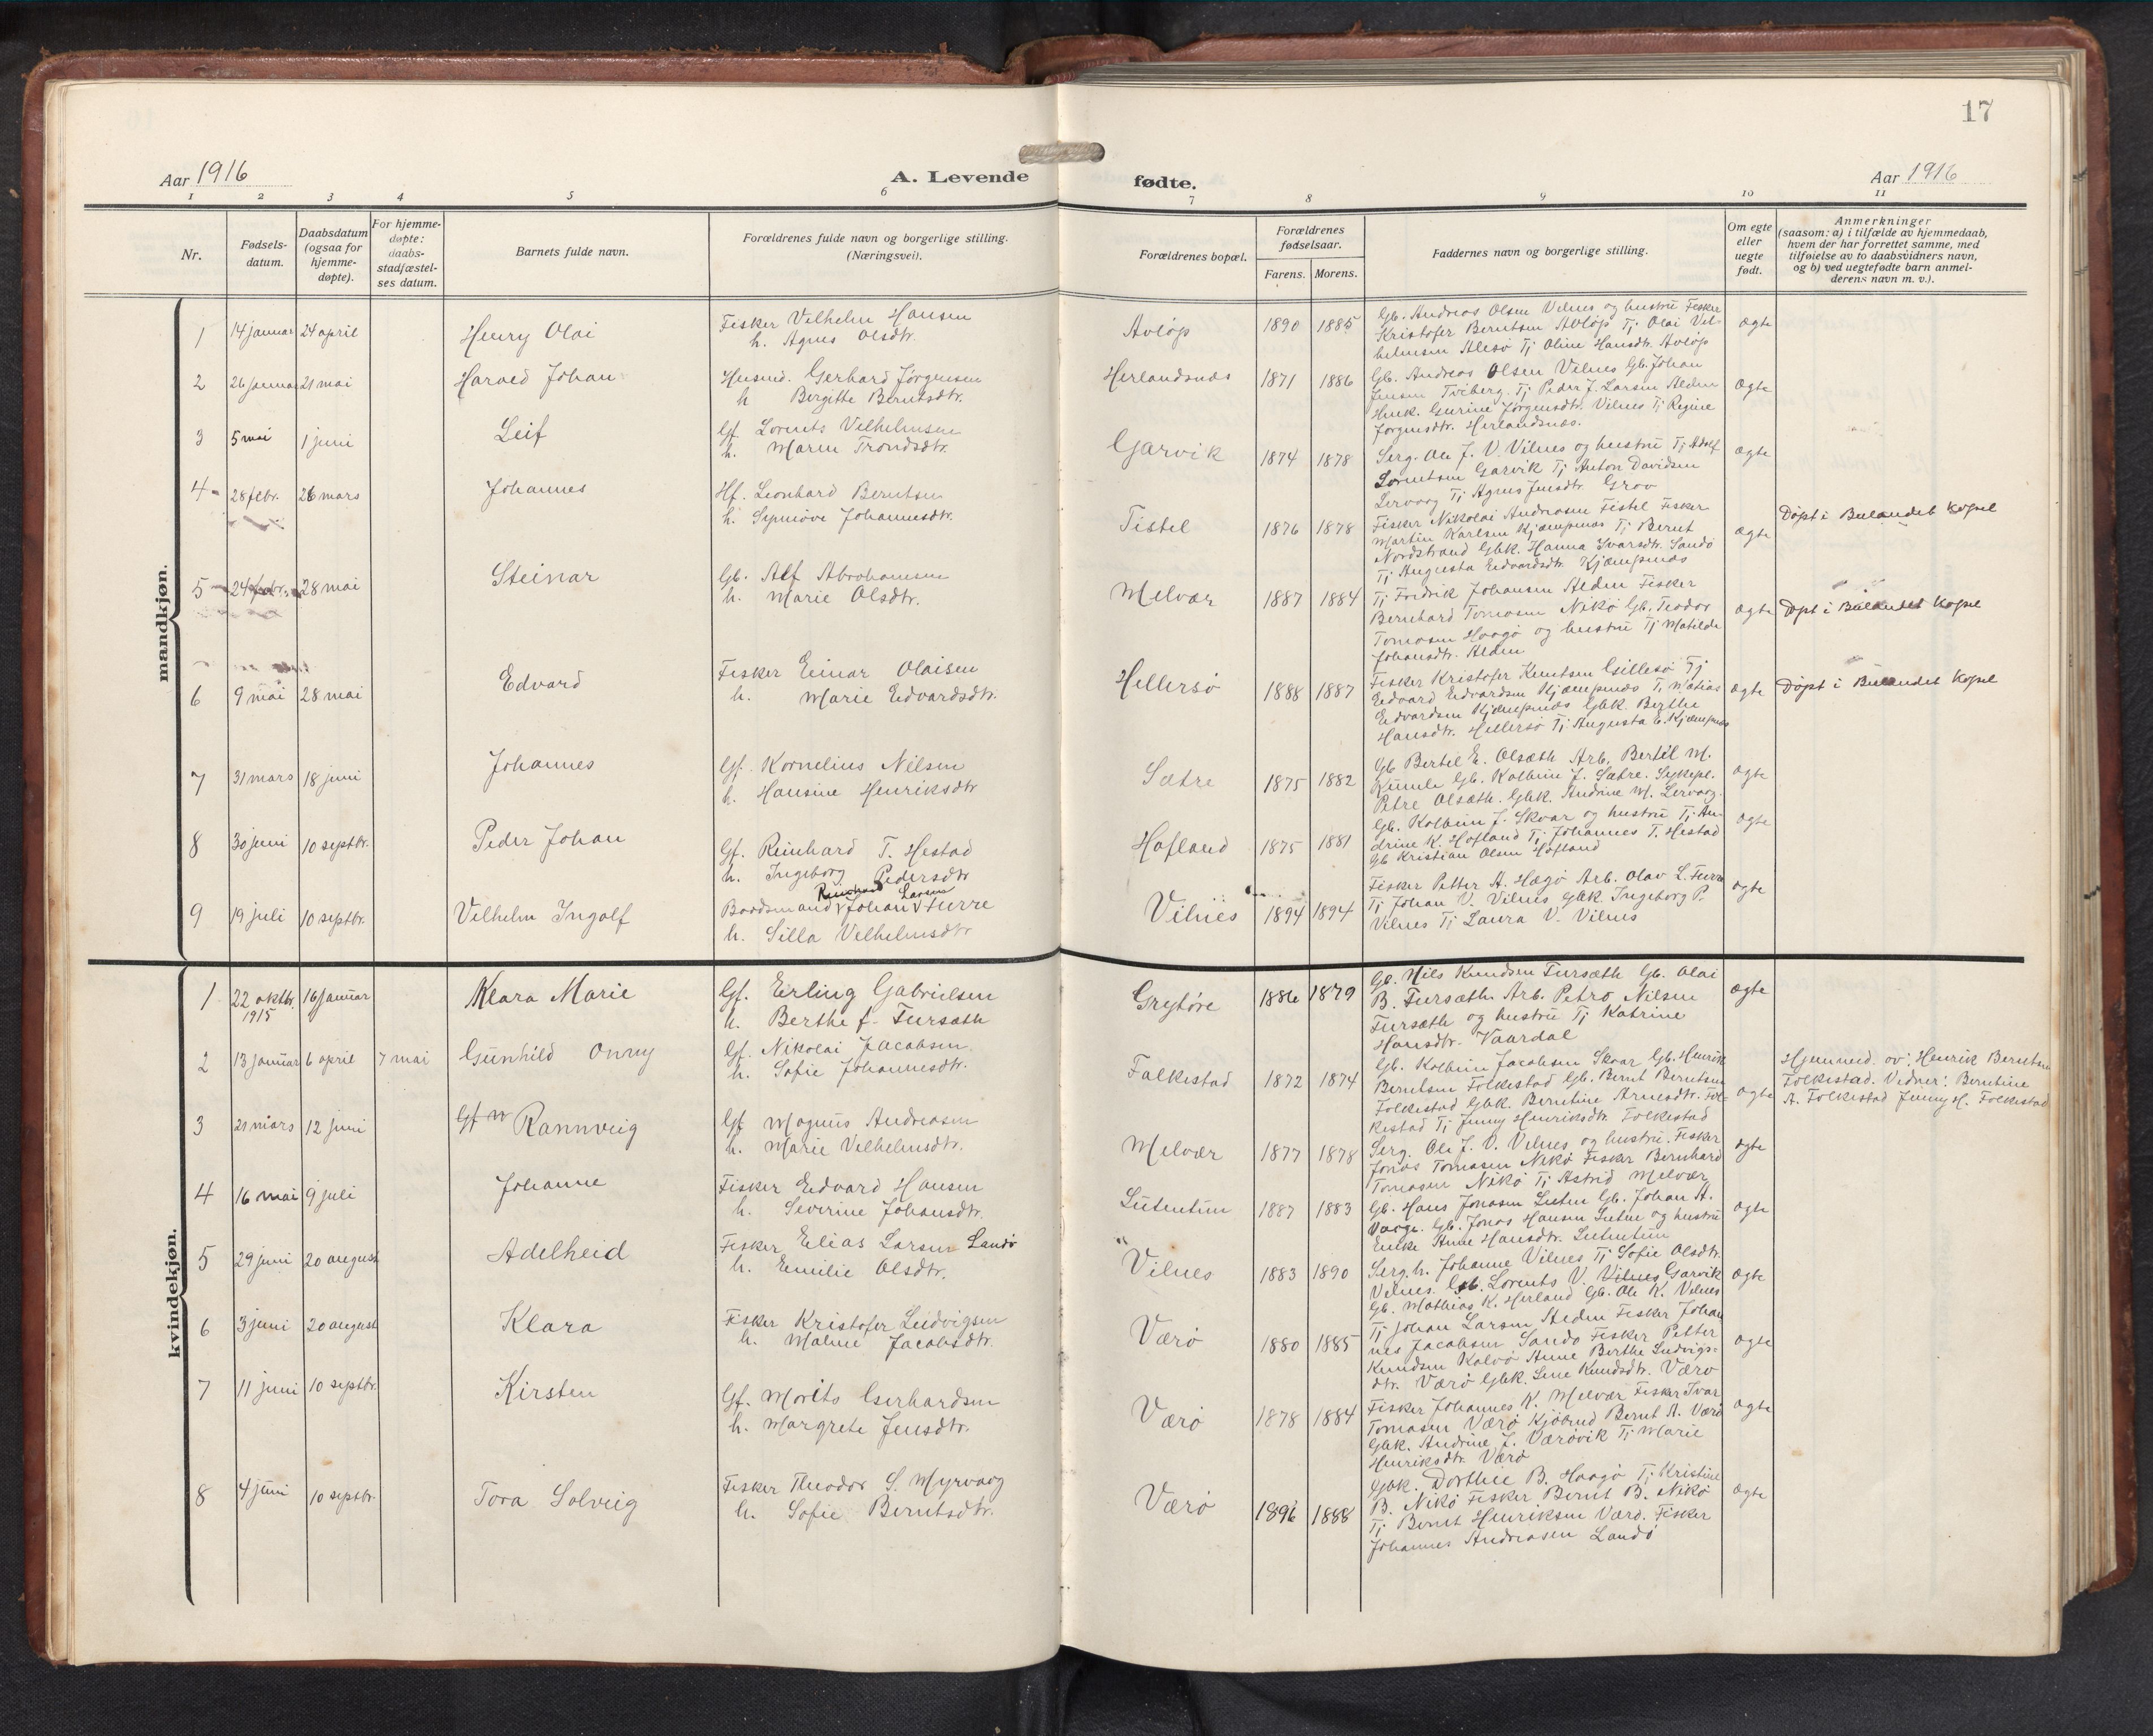 17
Aar 1916
A. Levende
fødte.
Aar 1916
1 2 3 4 5 6 7 8 9 10 11
Nr.
Fødsels-
datum.
Daabsdatum
(ogsaa for
hjemme-
døpte).
For hjemme-
døpte:
daabs-
stadfæstel-
ses datum.
Barnets fulde navn.
Forældrenes fulde navn og borgerlige stilling.
(Næringsvei).
Forældrenes bopæl.
Forældrenes
fødselsaar.
Farens. Morens.
Faddernes navn og borgerlige stilling.
Om egte
eller
uegte
født.
Anmerkninger
(saasom: a) i tilfælde av hjemmedaab,
hvem der har forrettet samme, med
tilføielse av to daabsvidners navn,
og b) ved uegtefødte barn anmel-
derens navn m. v.).
mandkjøn.
1 14 januar 24 april Henry Olai
Fisker Vilhelm Hansen
h. Agnes Olsdtr.
Avløp 1890 1885
Gb. Andreas Olsen Vilnes og hustru Fisker
Kristofer Berntsen Avløp Tj Olai Vil-
helmsen Alesø Tj Oline Hansdtr. Avløp
ægte
2 26 januar 21 mai Harald Johan
Husmd. Gerhard Jørgensen
h Birgitte Berntsdtr.
Herlandsnæs 1871 1886
Gb. Andreas Olsen Vilnes Gb. Johan
Jensen Tviberg. Tj Peder J. Larsen Alden
Husk. Gurine Jørgensdtr. Vilnes Tj Regine
Jørgensdtr. Herlandsnæs.
ægte
3 5 mai 1 juni Leif
Gf. Lorents Vilhelmsen
h. Maren Trondsdtr.
Garvik 1874 1878
Serg. Ole J. V. Vilnes og hustru Tj Adolf
Lorentsen Garvik Tj Anton Davidsen
Lervaag Tj Agnes Jensdtr. Grov
ægte
4 28 febr. 26 mars Johannes
Hf. Leonhard Berntsen
h. Synnøve Johannesdtr.
Tistel 1876 1878
Fisker Nikolai Andreasen Tistel Fisker
Martin Karlsen Kjempenæs Tj Bernt
Nordstrand Gbk. Hanna Ivarsdtr. Sandø
Tj Augusta Edvardsdtr. Kjempenæs
ægte
Døpt i Bulandet kapel
5 24 febr. 28 mai Steinar
Gb. Alf Abrahamsen
h. Marie Olsdtr.
Melvær 1887 1884
Tj Fredrik Johansen Alden Fisker
Bernhard Tomasen Nikø Gb. Teodor
Tomasen Haagø og hustru Tj Matilde
Johansdtr. Alden
ægte
Døpt i Bulandet kapel
6 9 mai 28 mai Edvard
Fisker Einar Olaisen
h. Marie Edvardsdtr.
Hellersø 1888 1887
Fisker Kristofer Knutsen Gillesø Tj
Edvard Edvardsen Kjempenæs Tj Matias
Edvardsen Kjempenæs Gbk. Berthe
Hansdtr. Hellersø Tj Augusta E. Kjempnæs
ægte
Døpt i Bulandet kapel
7 31 mars 18 juni Johannes
Gf. Kornelius Nilsen
h. Hansine Henriksdtr
Sætre 1875 1882
Gb Bertel E. Olsæth Arb. Bertel M.
Gb. Kolbein J. Sætre. Sykepl.
Petre Olsæth. Gbk. Andrine M. Lervaag.
ægte
8 30 juni 10 septbr. Peder Johan
Gf. Reinhard T. Hestad
h. Ingeborg Pedersdtr
Hofland 1875 1881
Gb. Kolbein J. Skaar og hustru Tj An-
drine K. Hofland Tj Johannes T. Hestad
Gb Kristian Olsen Hofland
ægte
9 19 juli 10 septbr. Vilhelm Ingolf
Reinhard Larsen
Baadsmand v Johan v Furre
h. Silla Vilhelmsdtr
Vilnes 1894 1894
Fisker Petter A. Hægø Arb. Olav L. Furre
Tj Johan V. Vilnes Gbk Ingeborg P.
Vilnes Tj Laura V. Vilnes
ægte
kvindekjøn.
1 22 oktbr. 1915 16 januar Klara Marie
Gf. Erling Gabrielsen
h. Berthe f. Fursæth
Grytøre 1886 1879
Gb. Nils Knudsen Fursæth Gb. Olai
B. Fursæth. Arb. Petro Nilsen
Fursæth og hustru Tj Katrine
Hansdtr. Vaardal
ægte
2 13 januar 6 april 7 mai Gunhild Onny
Gf. Nikolai Jacobsen
h. Sofie Johannesdtr.
Folkestad 1872 1874
Gb. Kolbein Jacobsen Skaar Gb. Henrik
Berntsen Folkestad Gb. Bernt Berntsen
Folkestad Gbk. Berntine Arnesdtr. Fol-
kestad Tj Jenny Henriksdtr. Folkestad
ægte
Hjemmed. av: Henrik Berntsen
Folkestad. Vidner: Berntine
A. Folkestad Jenny H. Folkestad
3 21 mars 12 juni Rannveig
Gf Magnus Andreasen
h. Marie Vilhelmsdtr.
Melvær 1877 1878
Serg. Ole J. V. Vilnes og hustru. Fisker
Jonas Tomasen Nikø Fisker Bernhard
Tomasen Nikø Tj Astrid Melvær
ægte
4 16 mai 9 juli Johanne
Fisker Edvard Hansen
h. Severine Johansdtr.
Lutentun 1887 1883
Gb. Hans Jonasen Luten Gb. Johan A.
Vaage. Gb. Jonas Hansen Luten og hustru
Enke Anne Hansdtr. Lutentun
ægte
5 29 juni 20 august Adelheid
Fisker Elias Larsen Landø
h. Emilie Olsdtr.
Vilnes 1883 1890
Serg. h. Johanne Vilnes Tj Sofie Olsdtr.
Vilnes. Gb. Lorents V. Vilnes Garvik
Gb. Mathias K. Herland Gb. Ole K. Vilnes
ægte
6 3 juni 20 august Klara
Fisker Kristofer Ludvigsen
h. Maline Jacobsdtr.
Værø 1880 1885
Tj Johan Larsen Alden Fisker Johan-
nes Jacobsen Sandø Fisker Petter
Knudsen Kalvø Anne Berthe Ludvigs-
dtr. Værø Gbk. Line Knudsdtr. Værø
ægte
7 11 juni 10 septbr. Kirsten
Gf. Morits Gerhardsen
h. Margrete Jensdtr.
Værø 1878 1884
Fisker Johannes K. Melvær Fisker Ivar
Tomasen Værø Kjøbmd Bernt A. Værø
Gbk. Andrine J. Værøvik Tj Marie
Henriksdtr Værø
ægte
8 4 juni 10 septbr. Tora Solveig
Fisker Theodor S. Myrvaag
h. Sofie Berntsdtr.
Værø 1896 1888
Gbk. Dorthie B. Haagø Tj Kristine
B. Nikø Fisker Bernt B. Nikø
Tj Bernt Henriksen Værø. Fisker
Johannes Andreasen Landø
ægte